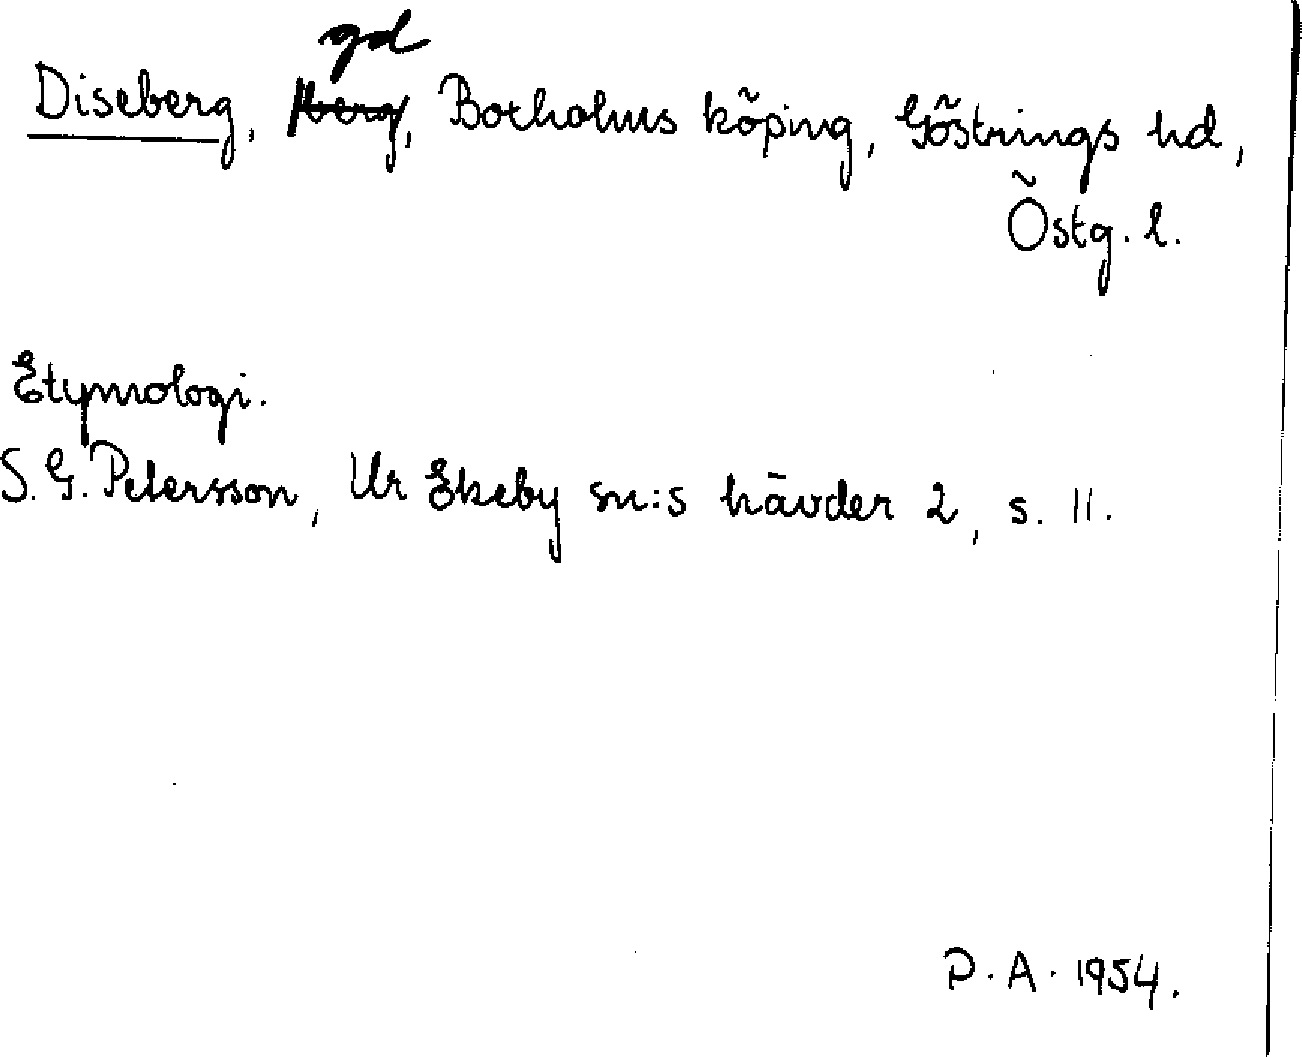 gd
Diseberg, berg, Boxholms köping, Göstrings hd,
Östg. l.
Etymologi.
S. G. Petersson, Ur Ekeby sn:s hävder 2, s. 11.
P. A. 1954.